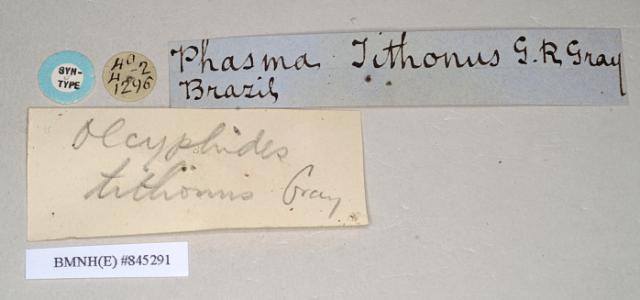 SYN-
TYPE
40
4-2
1296
Phasma Tithonus G.R. Gray
Brazil
Olcyphides
tithonus Gray
BMNH(E) #845291